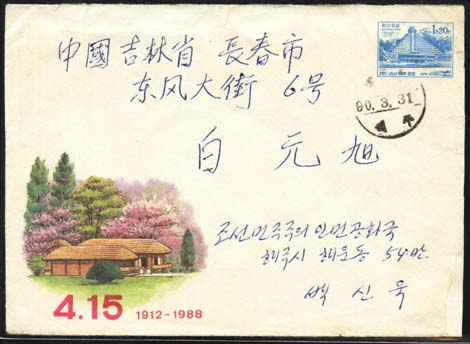 1,20
中國吉林省 長春市
东风大街 6号
90.3.31
白元旭
조선민주주의 인민공화국
해주시 해운동 54반
백신욱
4.15 1912-1988